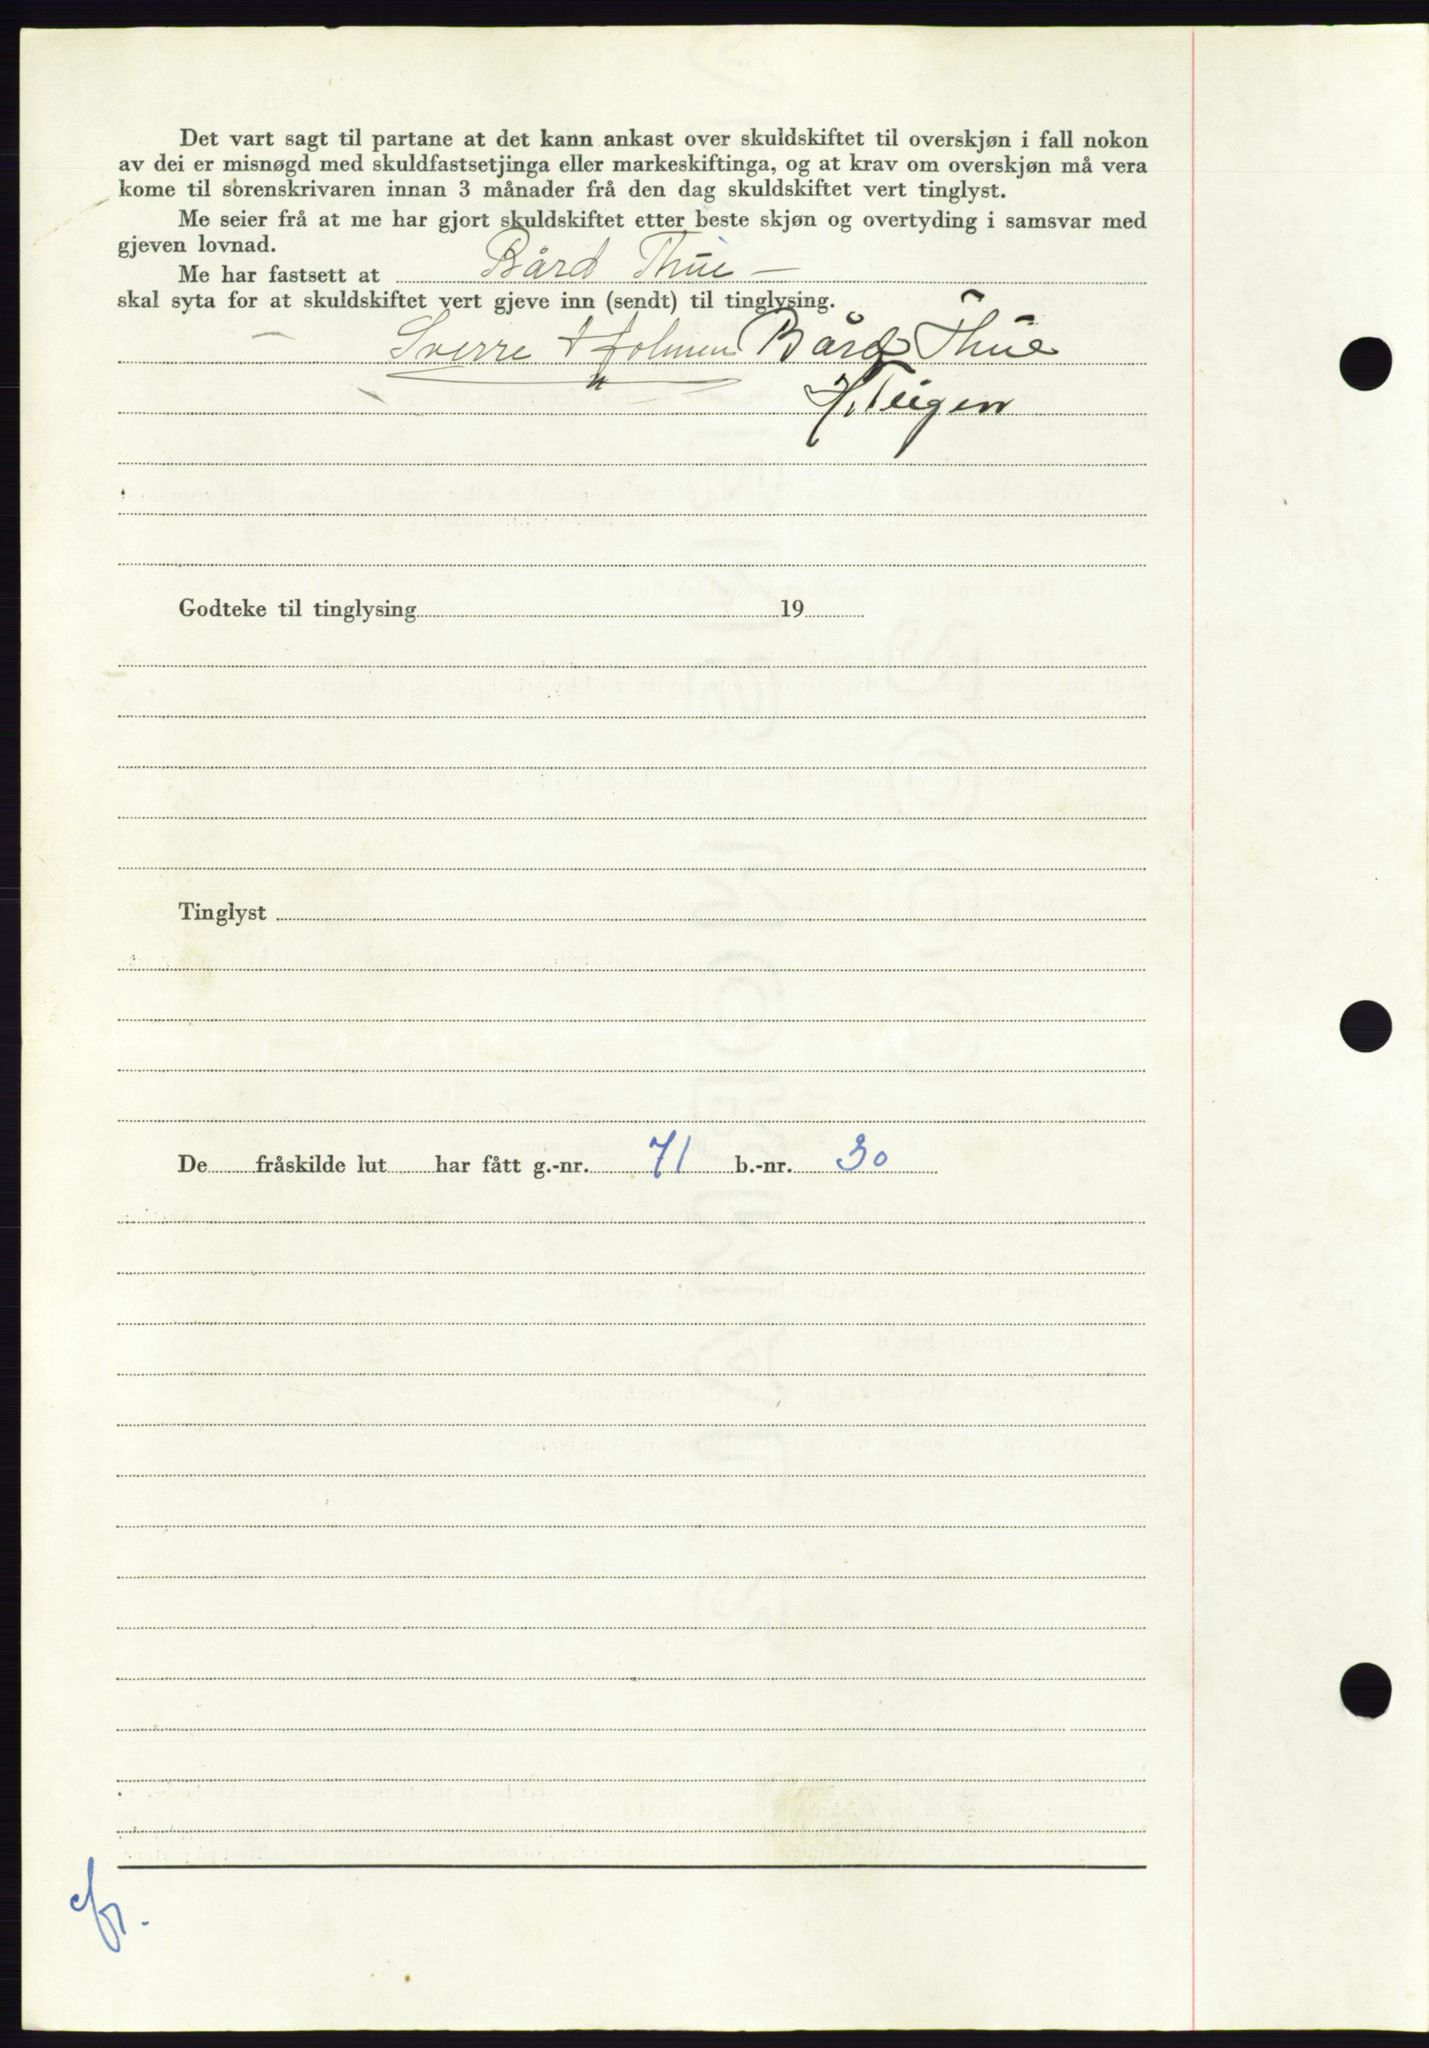 Det vart sagt til partane at det kann ankast over skuldskiftet til overskjøn i fall nokon
av dei er misnøgd med skuldfastsetjinga eller markeskiftinga, og at krav om overskjøn må vera
kome til sorenskrivaren innan 3 månader frå den dag skuldskiftet vert tinglyst.
Me seier frå at me har gjort skuldskiftet etter beste skjøn og overtyding i samsvar med
gjeven lovnad.
Me har fastsett at Bård Thue —
skal syta for at skuldskiftet vert gjeve inn (sendt) til tinglysing.
Sverre Holmen Bård Thue
H. Teigen
Godteke til tinglysing 19
Tinglyst
De fråskilde lut har fått g.-nr. 71 b.-nr. 30